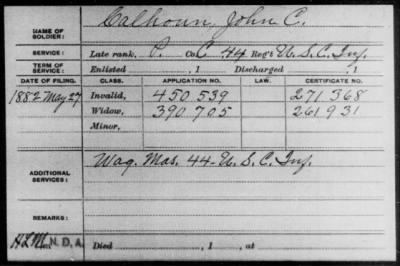 Calhoun, John C.
NAME OF
SOLDIER:
SERVICE: Late rank, P. Co. C, 44 Reg't U.S.C. Inf.
TERM OF
SERVICE: Enlisted , 1 Discharged , 1
DATE OF FILING. CLASS. APPLICATION NO. LAW. CERTIFICATE NO.
1882 May 27 Invalid, 450 539 271 368
Widow, 390 705 261 931
Minor,
Wag. Mas. 44-U.S.C. Inf.
ADDITIONAL
SERVICES:
REMARKS:
N.D.A. Died , 1 , at